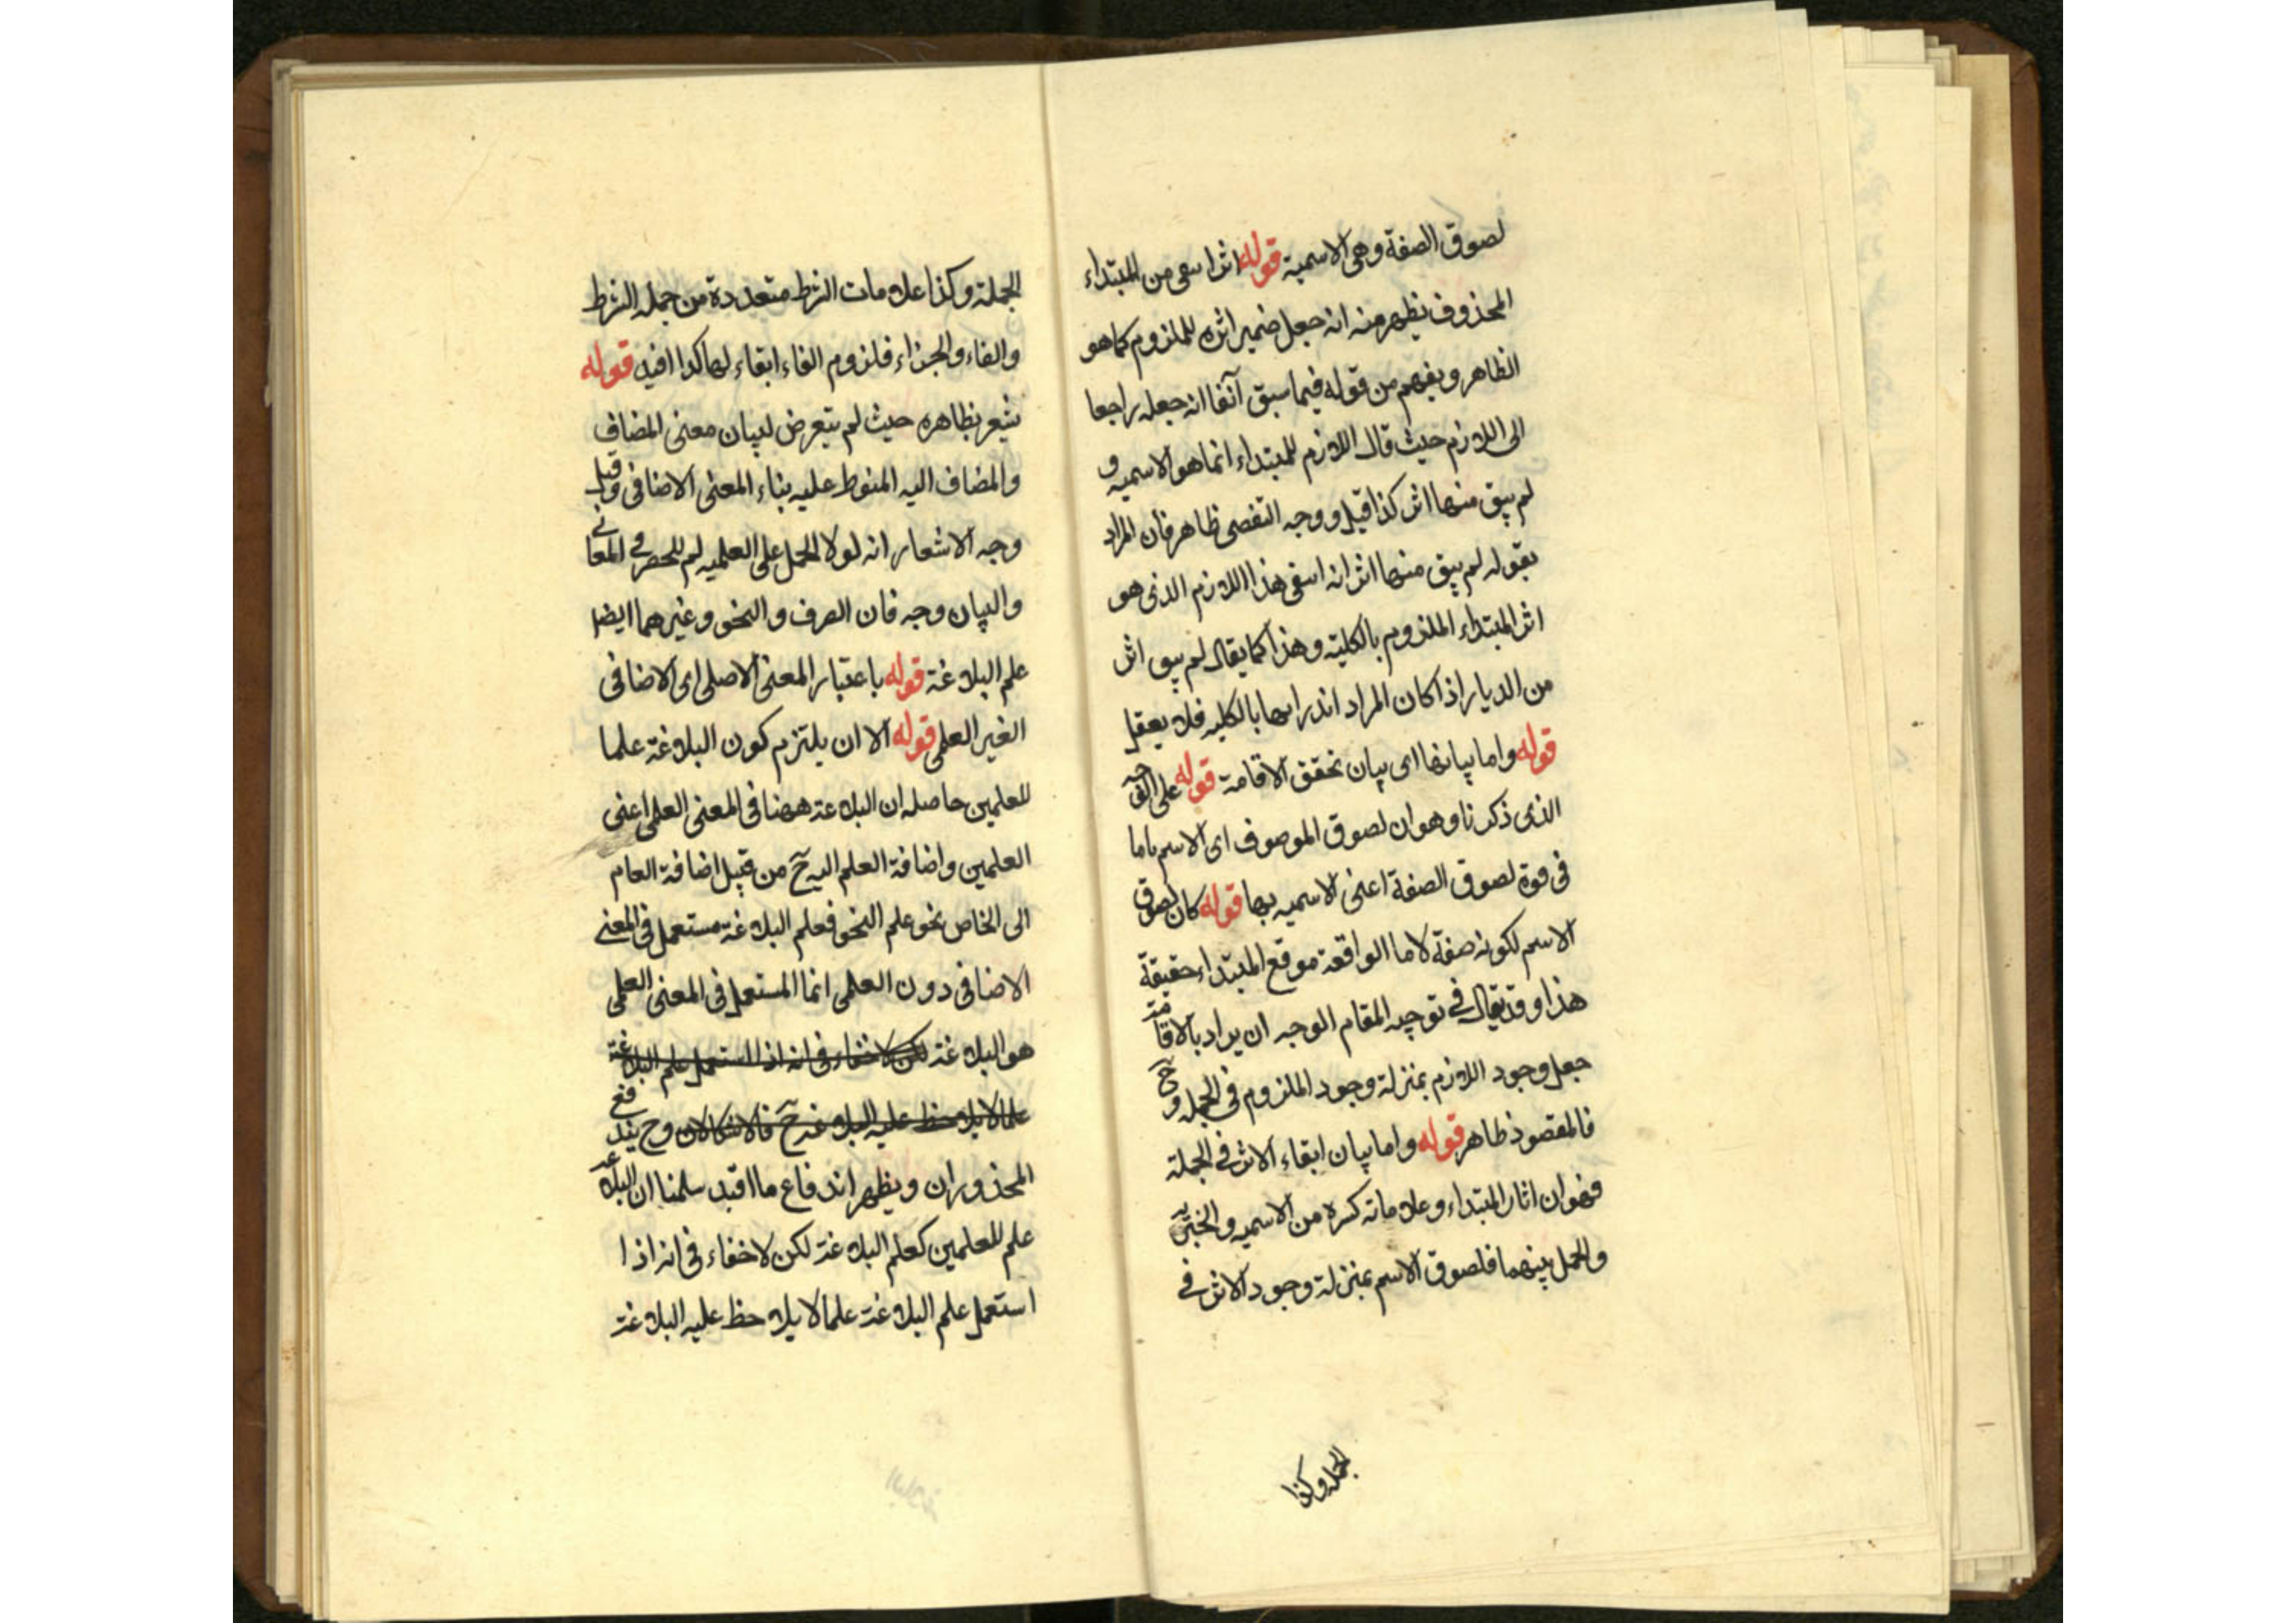 لصوق الصفة وهى الاسمية قوله اثرا سعى من المبتداء
المحذوف يظهر منه انه جعل ضمير اثره للملزوم كما هو
الظاهر ويفهم من قوله فيما سبق آنفا انه جعله راجعا
الى اللازم حيث قال اللازم للمبتداء انما هو الاسميه و
لم يبق منها اثر كذا قيل ووجه التفصى ظاهر فان المراد
بقوله لم يبق منها اثر انه اسقى هذا اللازم الذى هو
اثر المبتداء الملزوم بالكلية وهذا كما يقال لم يبق اثر
من الديار اذا كان المراد اندراسها بالكليه فلا يعقل
قوله واما بيانها اى بيان تحقق الاقامة قوله على الوجه
الذى ذكرنا وهو ان لصوق الموصوف اى الاسم باما
فى قوة لصوق الصفة اعنى الاسميه بها قوله كان لصوق
الاسم لكونه صفة لاما الواقعة موقع المبتداء حقيقة
هذا وقد يقال فى توجيه المقام الوجه ان يراد بالاقامة
جعل وجود اللازم بمنزلة وجود الملزوم فى الجمله و ح
فالمقصود ظاهر قوله واما بيان ابقاء الاثر فى الجملة
فهو ان اثار المبتداء وعلاماته كثيرة من الاسميه والخبرية
والحمل بينهما فلصوق الاسم بمنزلة وجود الاثر فى
الجمله وكذا
الجملة وكذا علامات الشرط متعددة من جمله الشرط
والفاء والجزاء فلزوم الفاء ابقاء لها كذا افيد قوله
يشعر بظاهره حيث لم يتعرض لبيان معنى المضاف
والمضاف اليه المنوط عليه بناء المعنى الاضافى وقيل
وجه الاشعار انه لولا الحمل على العلميه لم للحصر فى المعانى
والبيان وجه فان الصرف والنحو وغيرهما ايضا
علم البلاغة قوله باعتبار المعنى الاصلى اى الاضافى
الغير العلمى قوله الا ان يلتزم كون البلاغة علما
للعلمين حاصله ان البلاغة ههنا فى المعنى العلمى اعنى
العلمين واضافة العلم اليه ح من قبيل اضافة العام
الى الخاص نحو علم النحو فعلم البلاغة مستعمل فى المعنى
الاضافى دون العلمى انما المستعمل فى المعنى العلمى
هو البلاغة لكن لا خفاء فى انه اذا استعمل علم البلاغة
علما لا يلاحظ عليه البلاغة ح فالاشكالان وح يندفع
المحذوران ويظهر اندفاع ما اقيد سلمنا ان البلاغة
علم للعلمين كعلم البلاغة لكن لا خفاء فى انه اذا
استعمل علم البلاغة علما لا يلاحظ عليه البلاغة